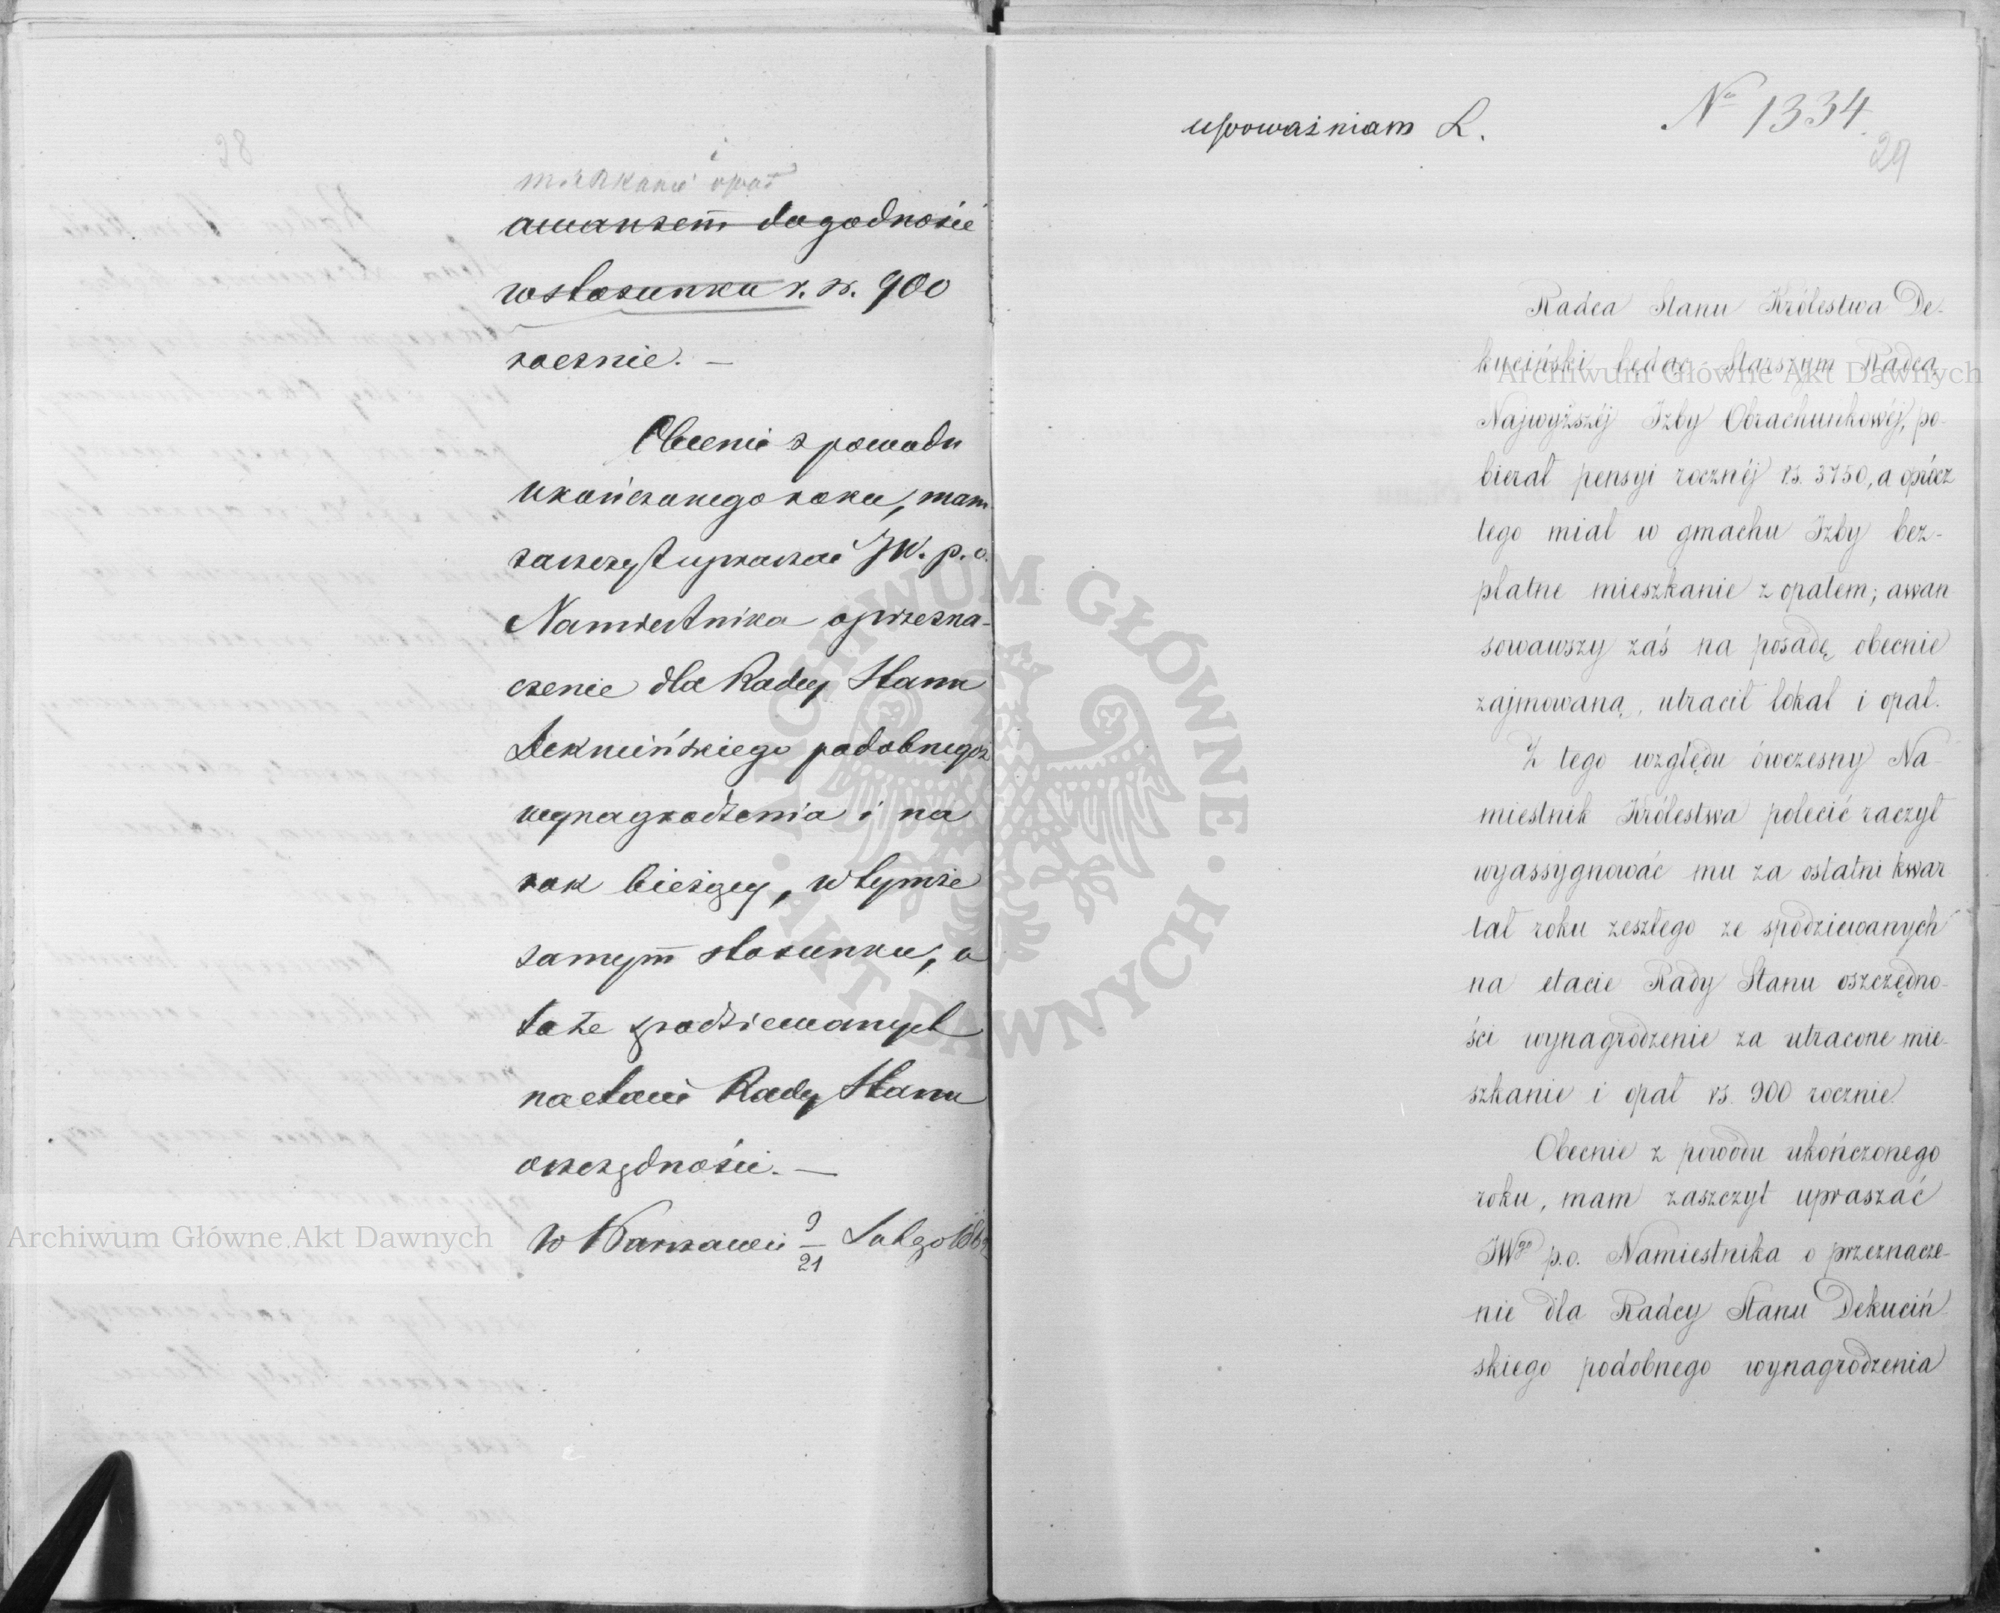 i
mieszkanie opał
awansem dogodności
w stosunku r. sr. 900
rocznie. —
Obecnie z powodu
ukończonego roku, mam
zaszczyt upraszać JW. p. o.
Namiestnika o przezna-
czenie dla Radcy Stanu
Dekucińskiego podobnegoż
wynagrodzenia i na
rok bieżący, w tymże
samym stosunku, a
to ze spodziewanych
na etacie Rady Stanu
oszczędności. —
w Warszawie 9/21 Lutego 186
upoważniam L.
No 1334.
29
Radca Stanu Królestwa De-
kuciński będąc Starszym Radcą
Najwyższéj Izby Obrachunkowéj, po-
bierał pensyi rocznéj rs. 3750, a oprócz
tego miał w gmachu Izby bez-
płatne mieszkanie z opałem; awan
sowawszy zaś na posadę obecnie
zajmowaną, utracił lokal i opał.
Z tego względu ówczesny Na-
miestnik Królestwa polecić raczył
wyassygnować mu za ostatni kwar
tał roku zeszłego ze spodziewanych
na etacie Rady Stanu oszczędno-
ści wynagrodzenie za utracone mie-
szkanie i opał rs. 900 rocznie.
Obecnie z powodu ukończonego
roku, mam zaszczyt upraszać
JWgo p.o. Namiestnika o przeznacze-
nie dla Radcy Stanu Dekuciń-
skiego podobnego wynagrodzenia
Archiwum Główne Akt Dawnych
Archiwum Główne Akt Dawnych
ARCHIWUM GŁÓWNE · AKT DAWNYCH ·